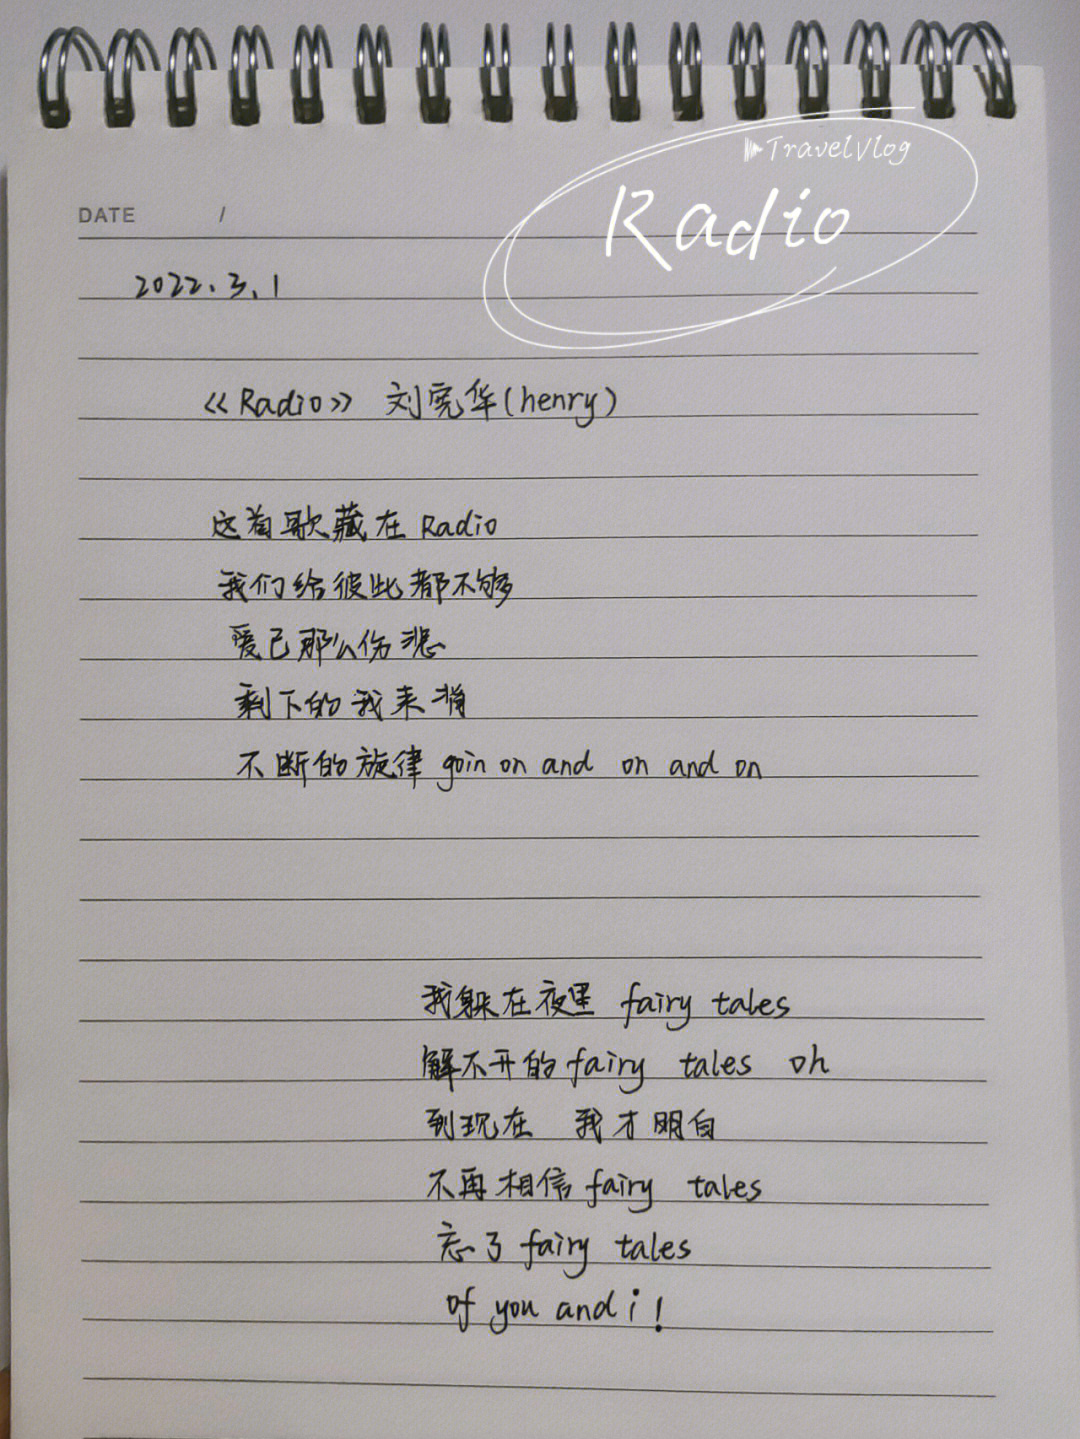 TravelVlog
Radio
DATE /
2022.3.1
《Radio》 刘宪华(henry)
这首歌藏在 Radio
我们给彼此都不够
爱已那么伤悲
剩下的我来消
不断的旋律 goin on and on and on
我躲在夜里 fairy tales
解不开的 fairy tales oh
到现在 我才明白
不再相信 fairy tales
忘了 fairy tales
of you and i !